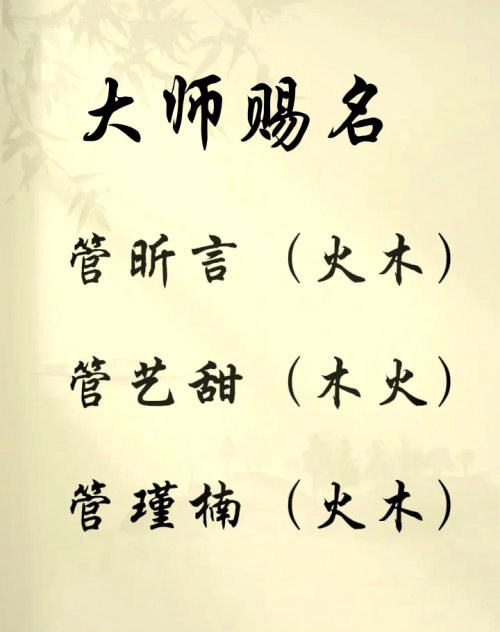 大师赐名
管昕言（火木）
管艺甜（木火）
管瑾楠（火木）